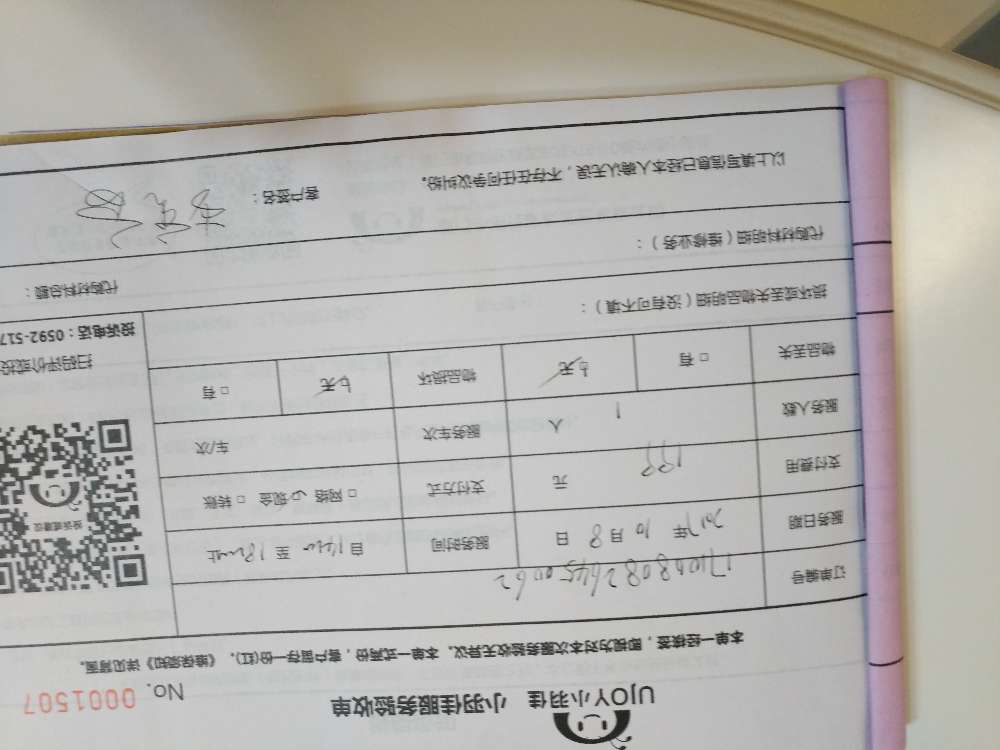 UJOY小羽佳 小羽佳服务验收单 No. 0001507
本单一经核签，即视为对本次服务验收无异议。本单一式两份，客户留存一份(红)。《维保须知》详见背面。
订单编号
服务日期 2017年 10月 8 日 服务时间 自 至
支付费用 199 元 支付方式 □ 网络 现金 □ 转账
服务人数 1 人 服务车次 车/次
物品丢失 □ 有 无 物品损坏 无 □ 有
投诉或建议
扫码评价或投
投诉电话：0592-517
损坏或丢失物品明细（没有可不填）：
代购材料明细（维修业务）： 代购材料总额：
以上填写信息已经本人确认无误，不存在任何争议纠纷。 客户签名：